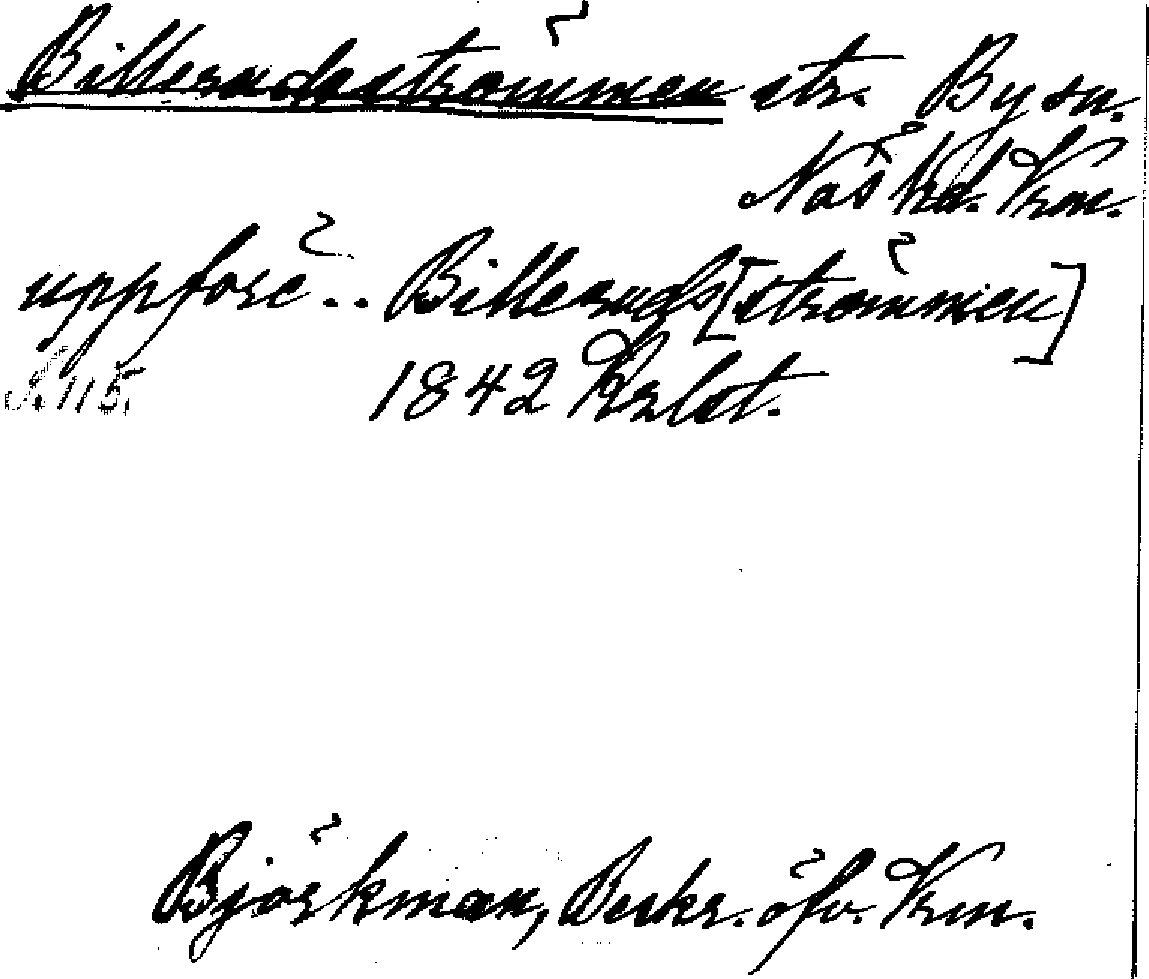 Billerudsströmmen str. By sn.
Näs hd. Vrm.
uppför .. Billeruds[strömmen]
S. 115. 1842 Krlst.
Björkman, Beskr. öfv. Vrm.